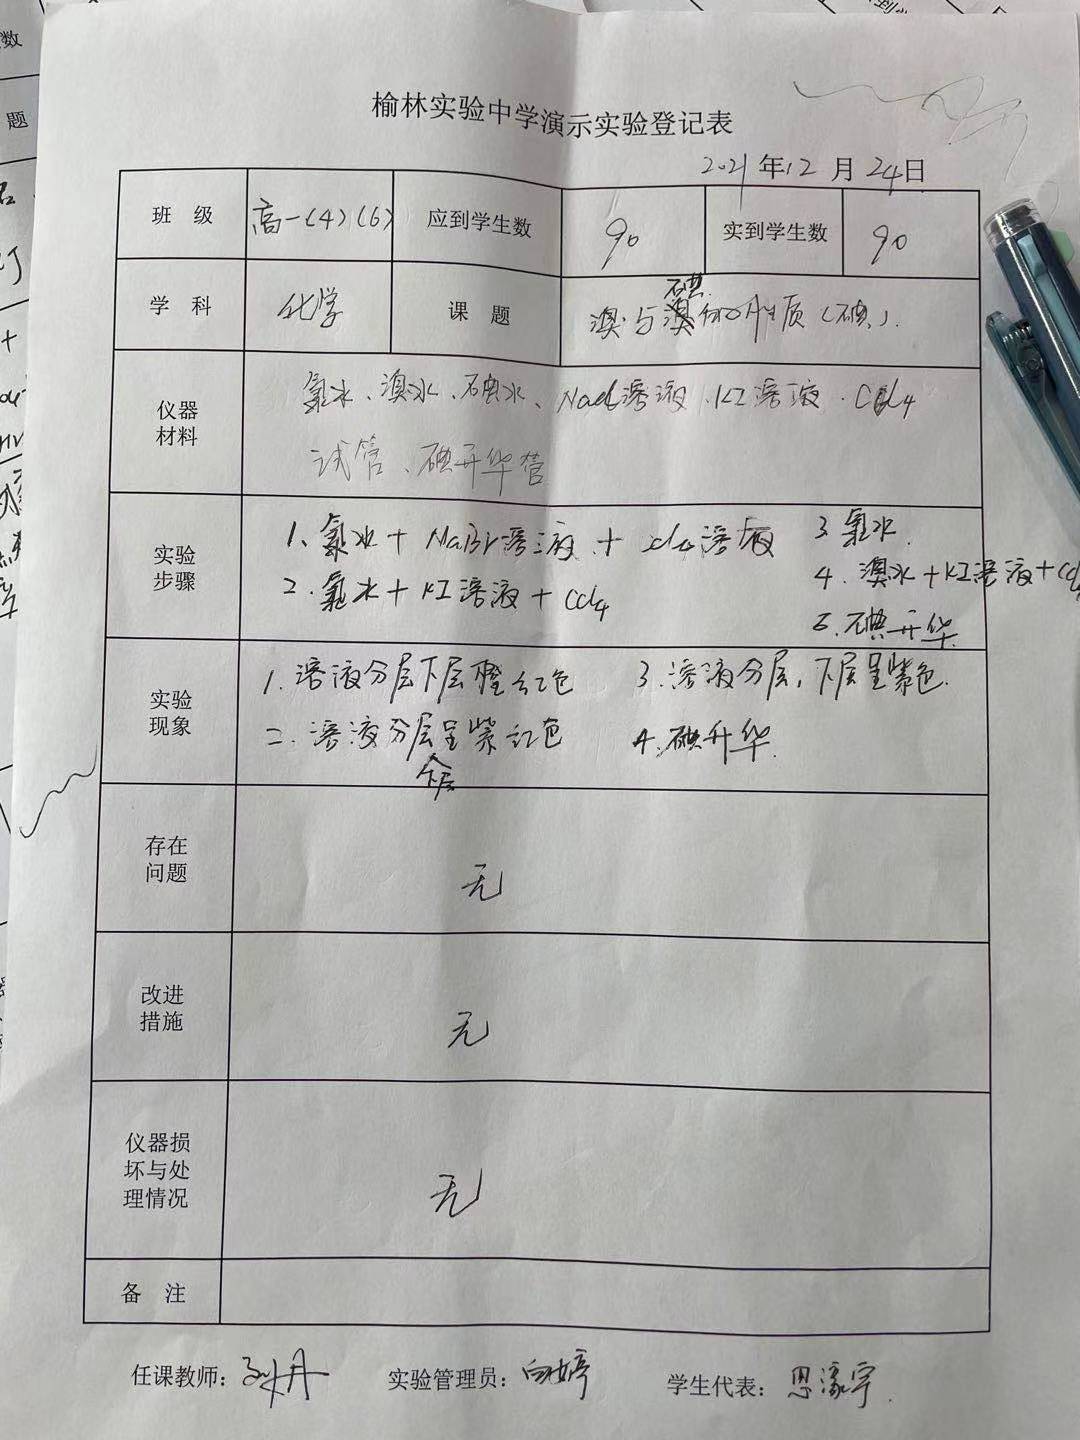 榆林实验中学演示实验登记表
2021年12月24日
班 级 高一(4)(6) 应到学生数 90 实到学生数 90
学 科 化学 课 题 溴与碘的性质(碘).
仪器材料 氯水、溴水、碘水、NaCl溶液.KI溶液.CCl4
试管、碘升华管
实验步骤 1、氯水+NaBr溶液+CCl4溶液 3 氯水.
2.氯水+KI溶液+CCl4 4.溴水+KI溶液+CCl4
5.碘升华
实验现象 1.溶液分层下层橙红色 3.溶液分层,下层呈紫色.
二.溶液分层下层呈紫红色 4.碘升华.
存在问题 无
改进措施 无
仪器损坏与处理情况 无
备 注
任课教师:刘丹 实验管理员:白婷 学生代表: